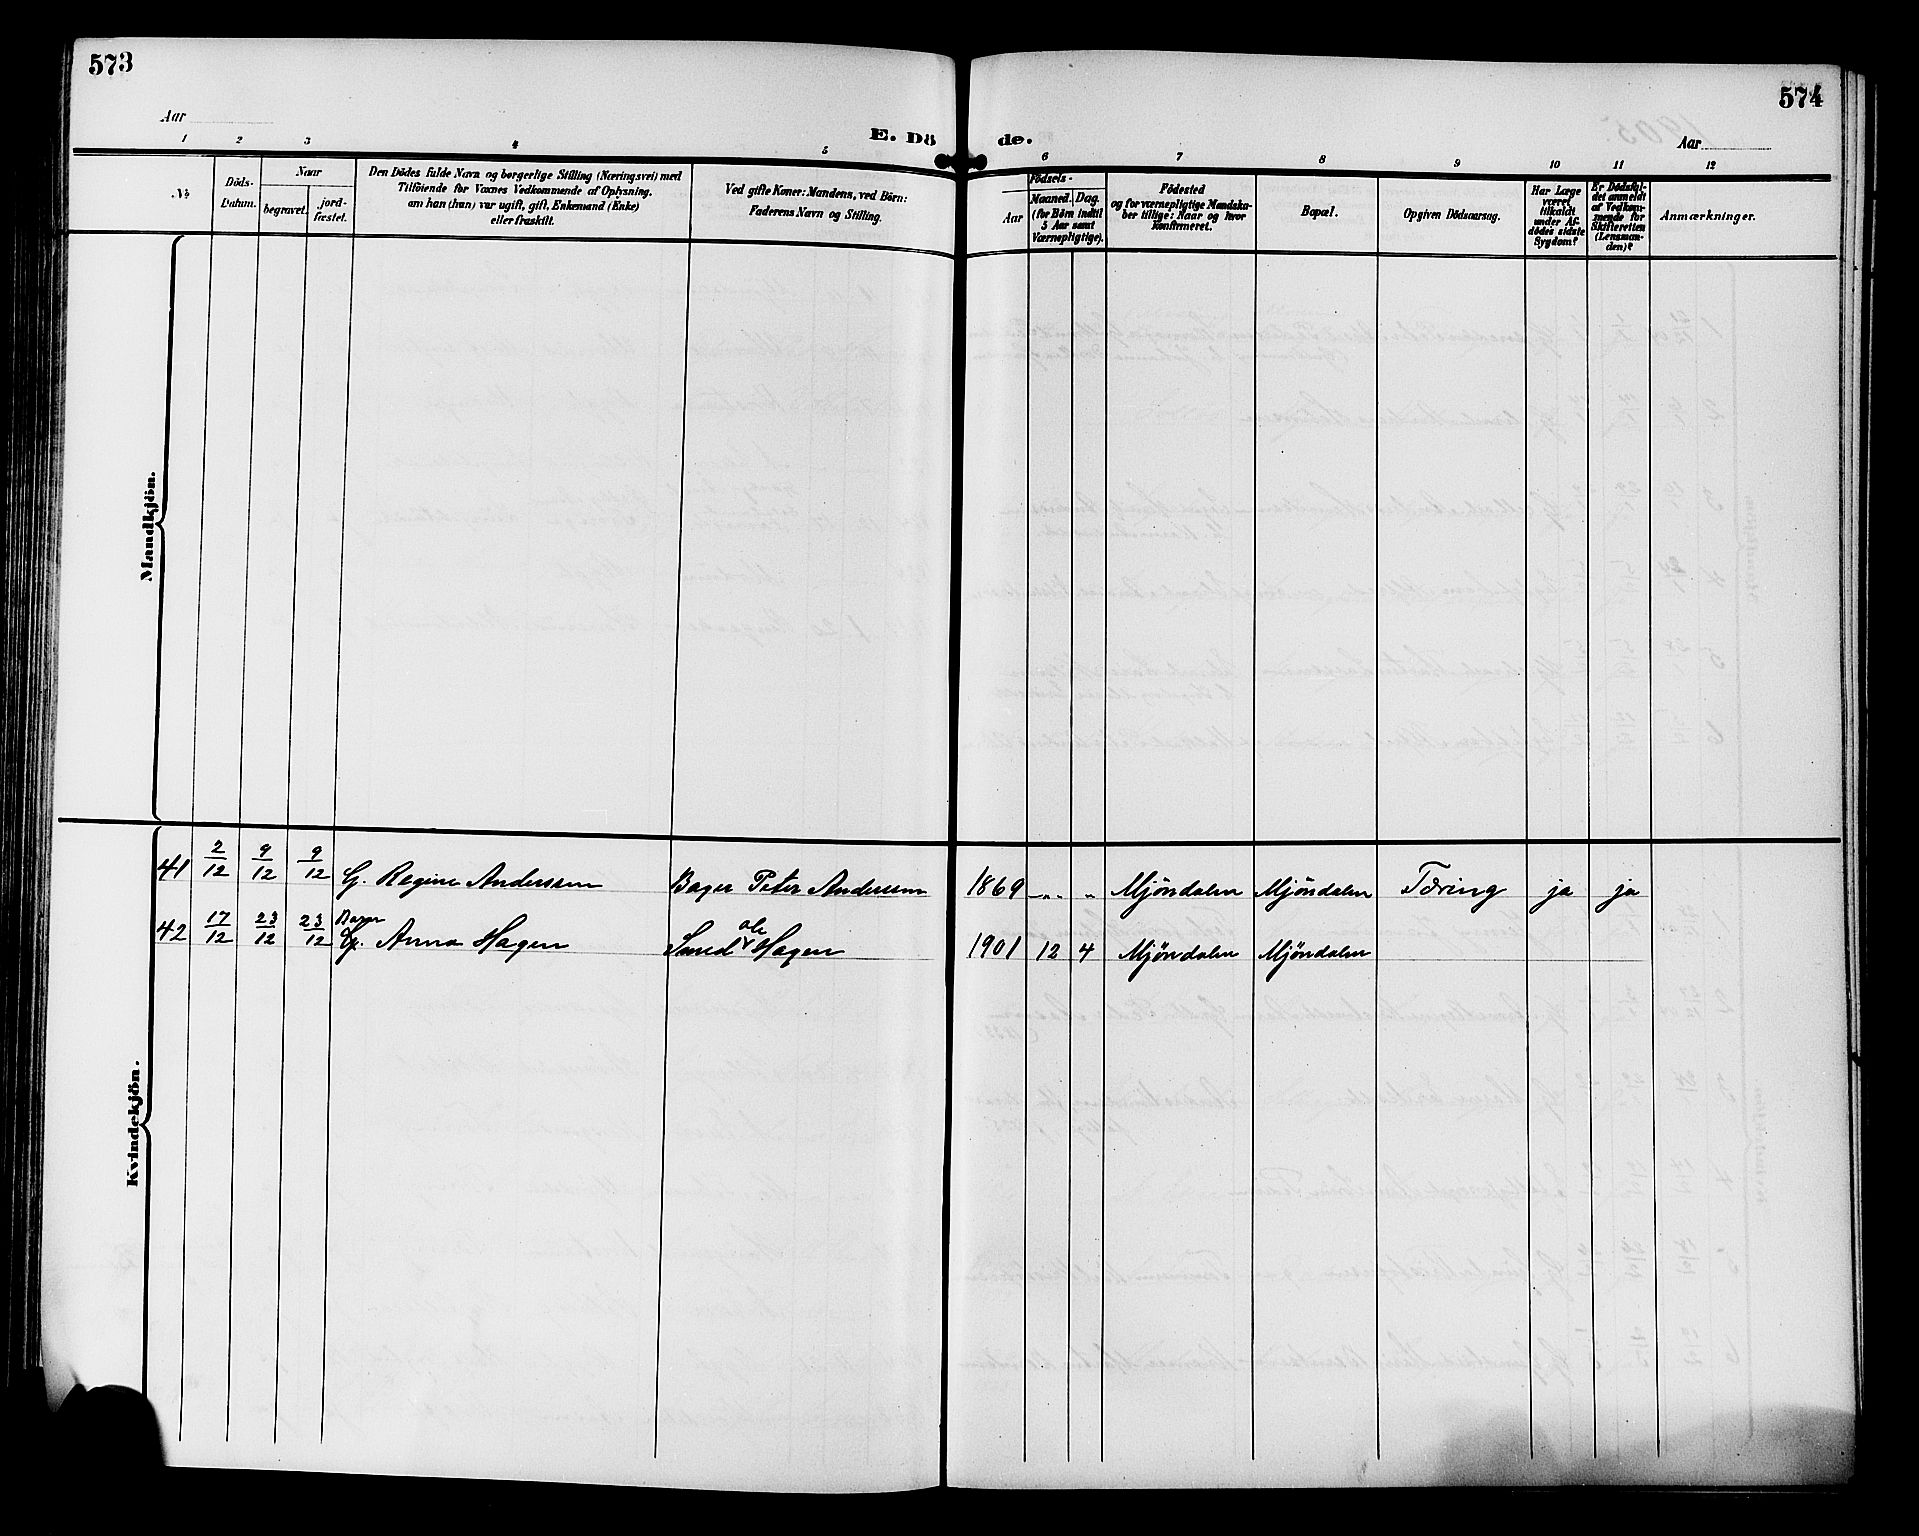 573
574
Aar
Aar
E. Dö de.
1 2 3 4 5 6 7 8 9 10 11 12
№
Döds-
Datum.
Naar
begravet.
jord-
fæstet.
Den Dödes fulde Navn og borgerlige Stilling (Næringsvei) med
Tilföiende for Voxnes Vedkommende af Oplysning,
om han (hun) var ugift, gift, Enkemand (Enke)
eller fraskilt.
Ved gifte Koner: Mandens, ved Börn:
Faderens Navn og Stilling.
Födsels-
Aar
Maaned.
Dag.
(for Börn indtil
5 Aar samt
Værnepligtige).
Födested
og for værnepligtige Mandska-
ber tillige: Naar og hvor
konfirmeret.
Bopæl.
Opgiven Dödsaarsag.
Har Læge
været
tilkaldt
under Af-
dödes sidste
Sygdom?
Er Dödsfal-
det anmeldt
af Vedkom-
mende for
Skifteretten
(Lensman-
den)?
Anmærkninger.
Mandkjön.
Kvindekjön.
41 2/12 9/12 9/12 G. Regine Anderssen Bager Peter Anderssen 1869 -„- „ Mjöndalen Mjöndalen Tæring ja ja
42 17/12 23/12 23/12 Anna Hagen Smed Ole Hagen 1901 12 4 Mjøndalen Mjøndalen